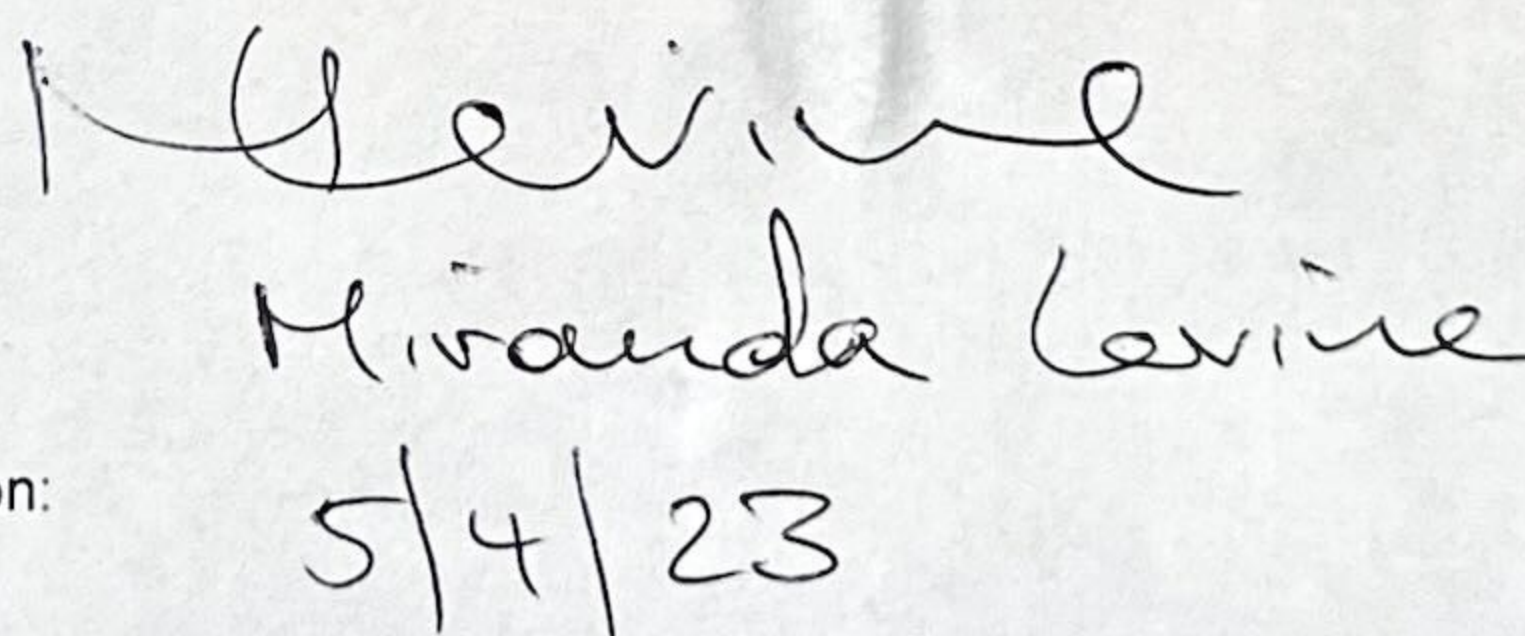 MLevine
Miranda Levine
on: 5/4/23